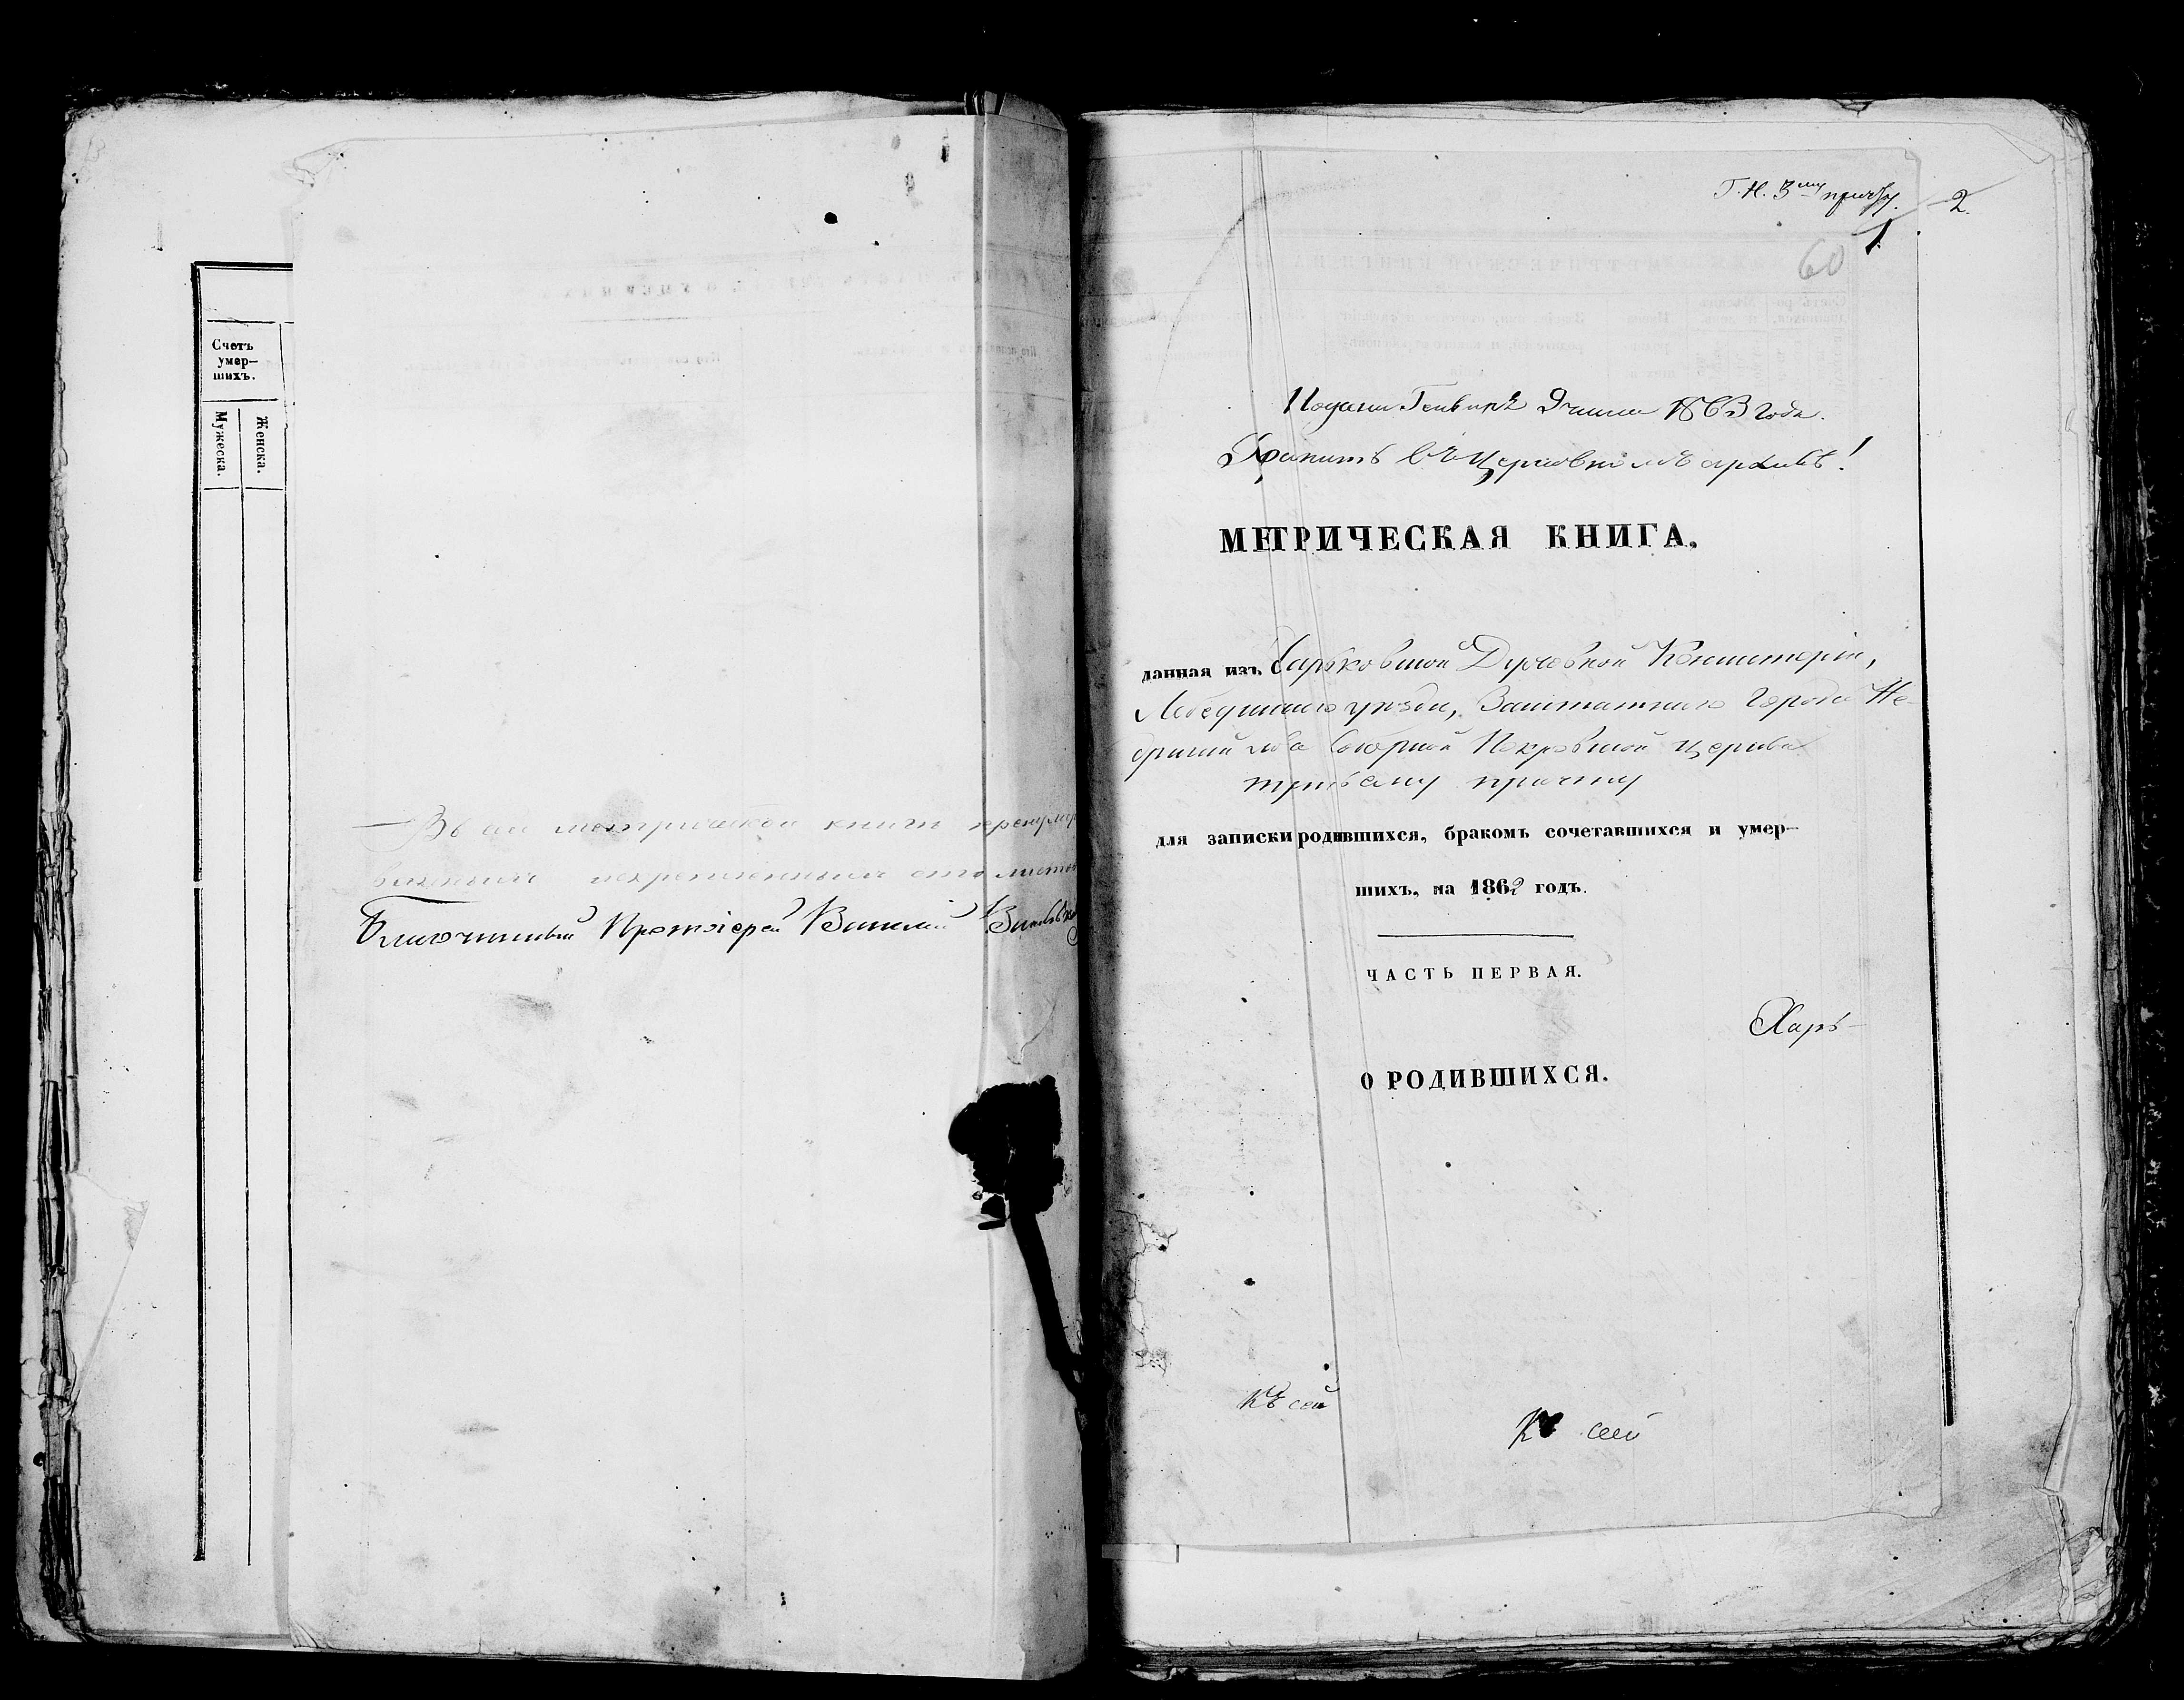 Счетъ
умер—
шихъ.
Мужеска.
Женска.
Въ сей метрической книги
сто листовъ
Благочинный Протоіерей Василій
Г. Н. 3му причту.
2.
1.
60
Подана Генваря 9 числа 1863 года.
Хранить въ Церковномъ архивѣ!
МЕТРИЧЕСКАЯ КНИГА,
данная изъ Харьковской Духовной Консисторіи,
Лебединскаго уѣзда, Заштатнаго города Не-
дригайлова Соборной Покровской церкви
третьему причту
для записки родившихся, бракомъ сочетавшихся и умер—
шихъ, на 1862 годъ.
ЧАСТЬ ПЕРВАЯ.
Харь-
О РОДИВШИХСЯ.
Къ сей
Къ сей